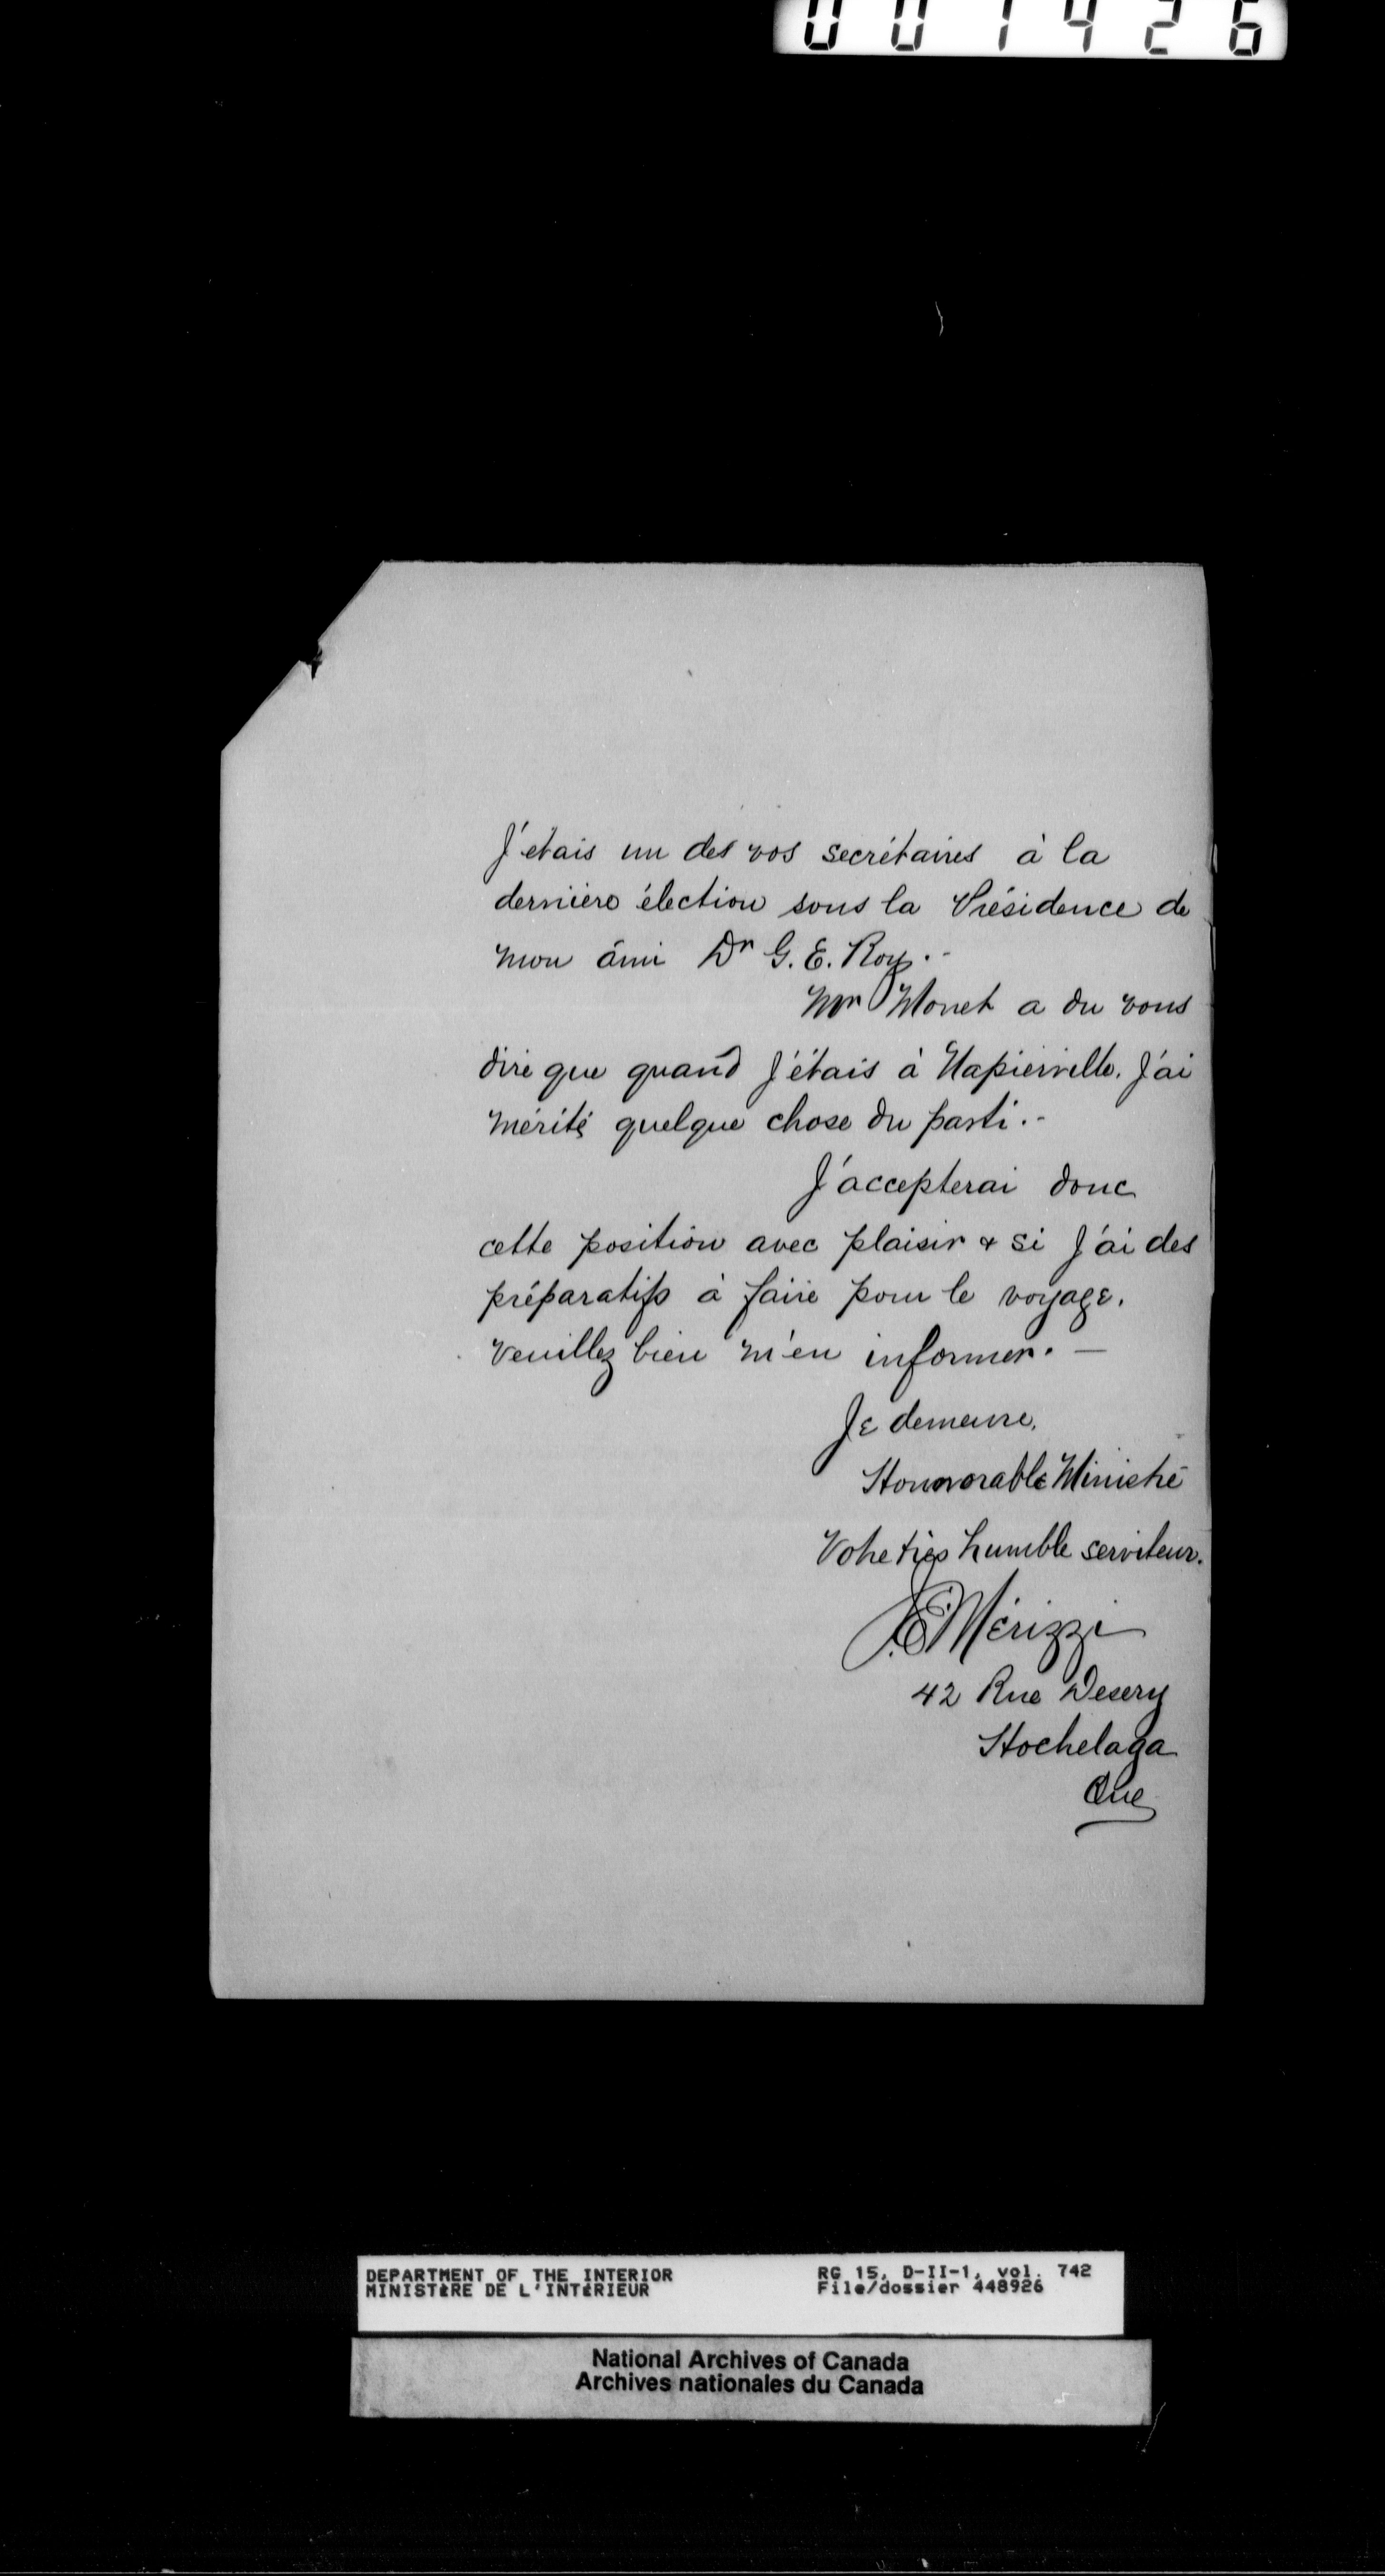 001426
J'étais un des vos secrétaires à la
dernière élection sous la Présidence de
mon âmi Dr G. E. Roy.-
Mr Monet a du vous
dire que quand J'étais à Napierville. J'ai
mérité quelque chose du parti.-
J'accepterai donc
cette position avec plaisir & si J'ai des
préparatifs à faire pour le voyage.
Veuillez bien m'en informer. —
Je demeure,
Honorable Ministre
Votre très humble serviteur.
J. E. Mérizzi
42 Rue Desery
Hochelaga
Que
DEPARTMENT OF THE INTERIOR RG 15, D-II-1, vol. 742
MINISTÈRE DE L'INTÉRIEUR File/dossier 448926
National Archives of Canada
Archives nationales du Canada